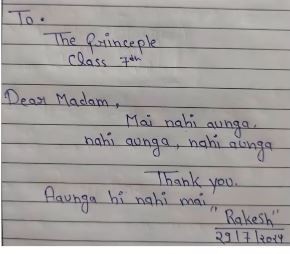 To.
The Princeple
Class 7th
Dear Madam,
Mai nahi aunga.
nahi aunga, nahi aunga
Thank you.
Aaunga hi nahi mai
"Rakesh"
29/7/2024